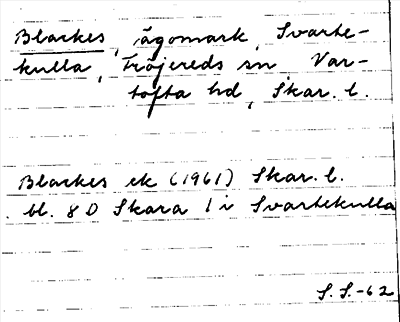 Blackes, ägomark, Svarte-
kulla, Fröjereds sn Var-
tofta hd, Skar. l.
Blackes ek (1961) Skar. l.
bl. 8 D Skara 1 i Svartekulla
S. S. -62